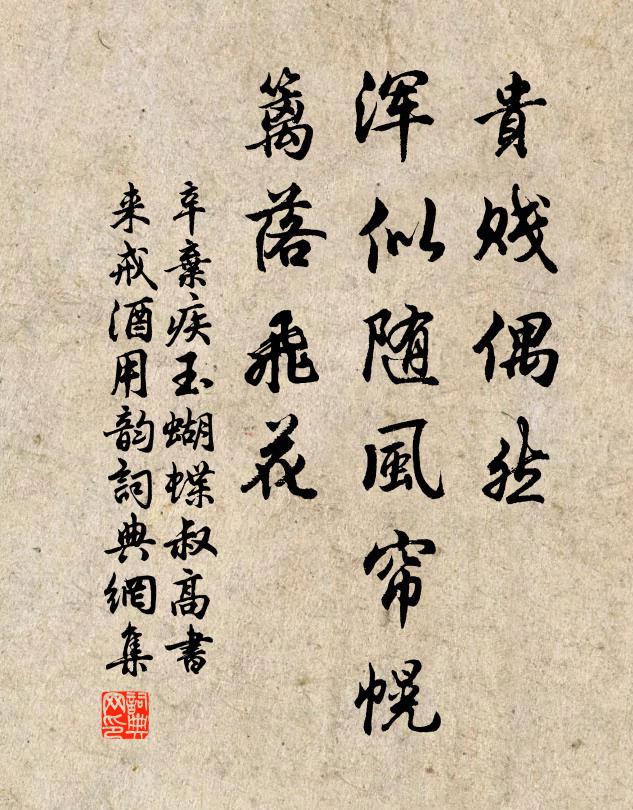 貴賤偶然
浑似随風帘幌
籬落飛花
辛棄疾玉蝴蝶叔高書
来戒酒用韵詞典網集
詞典网印